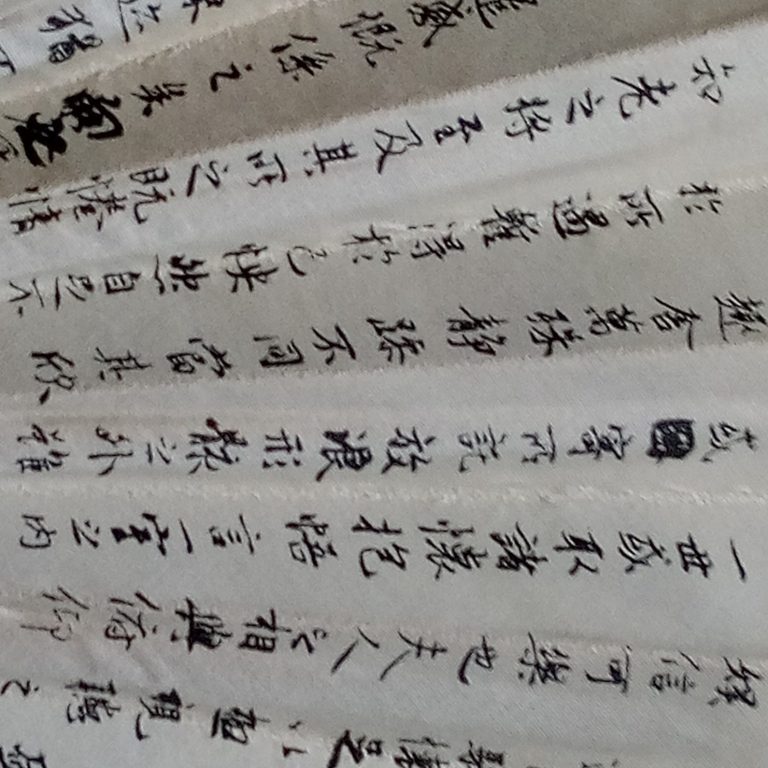 懷足以極視聽之
娛信可樂也夫人之相與俯仰
一世或取諸懷抱悟言一室之內
或因寄所託放浪形骸之外雖
趣舍萬殊靜躁不同當其欣
於所遇蹔得於己快然自足不
知老之將至及其所之既惓情
遷感慨係之矣向之
迹猶不